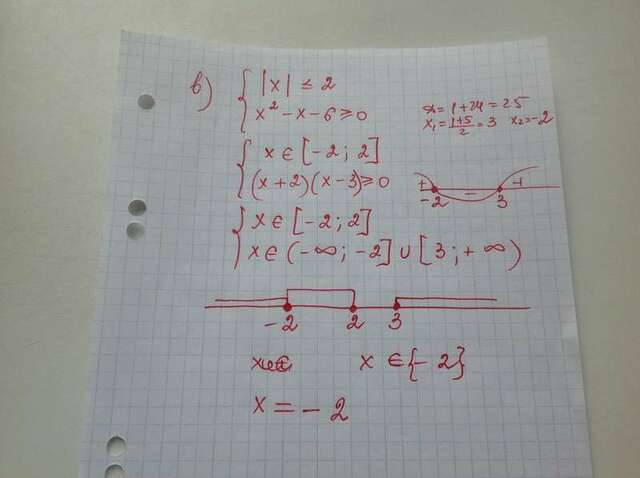 в) { |x| ≤ 2
x² - x - 6 ≥ 0
D = 1 + 24 = 25
x₁ = (1+5)/2 = 3 x₂ = -2
{ x ∈ [-2; 2]
(x + 2)(x - 3) ≥ 0
+ - +
-2 3
{ x ∈ [-2; 2]
x ∈ (-∞; -2] ∪ [3; +∞)
-2 2 3
x ∈ {-2}
x = -2